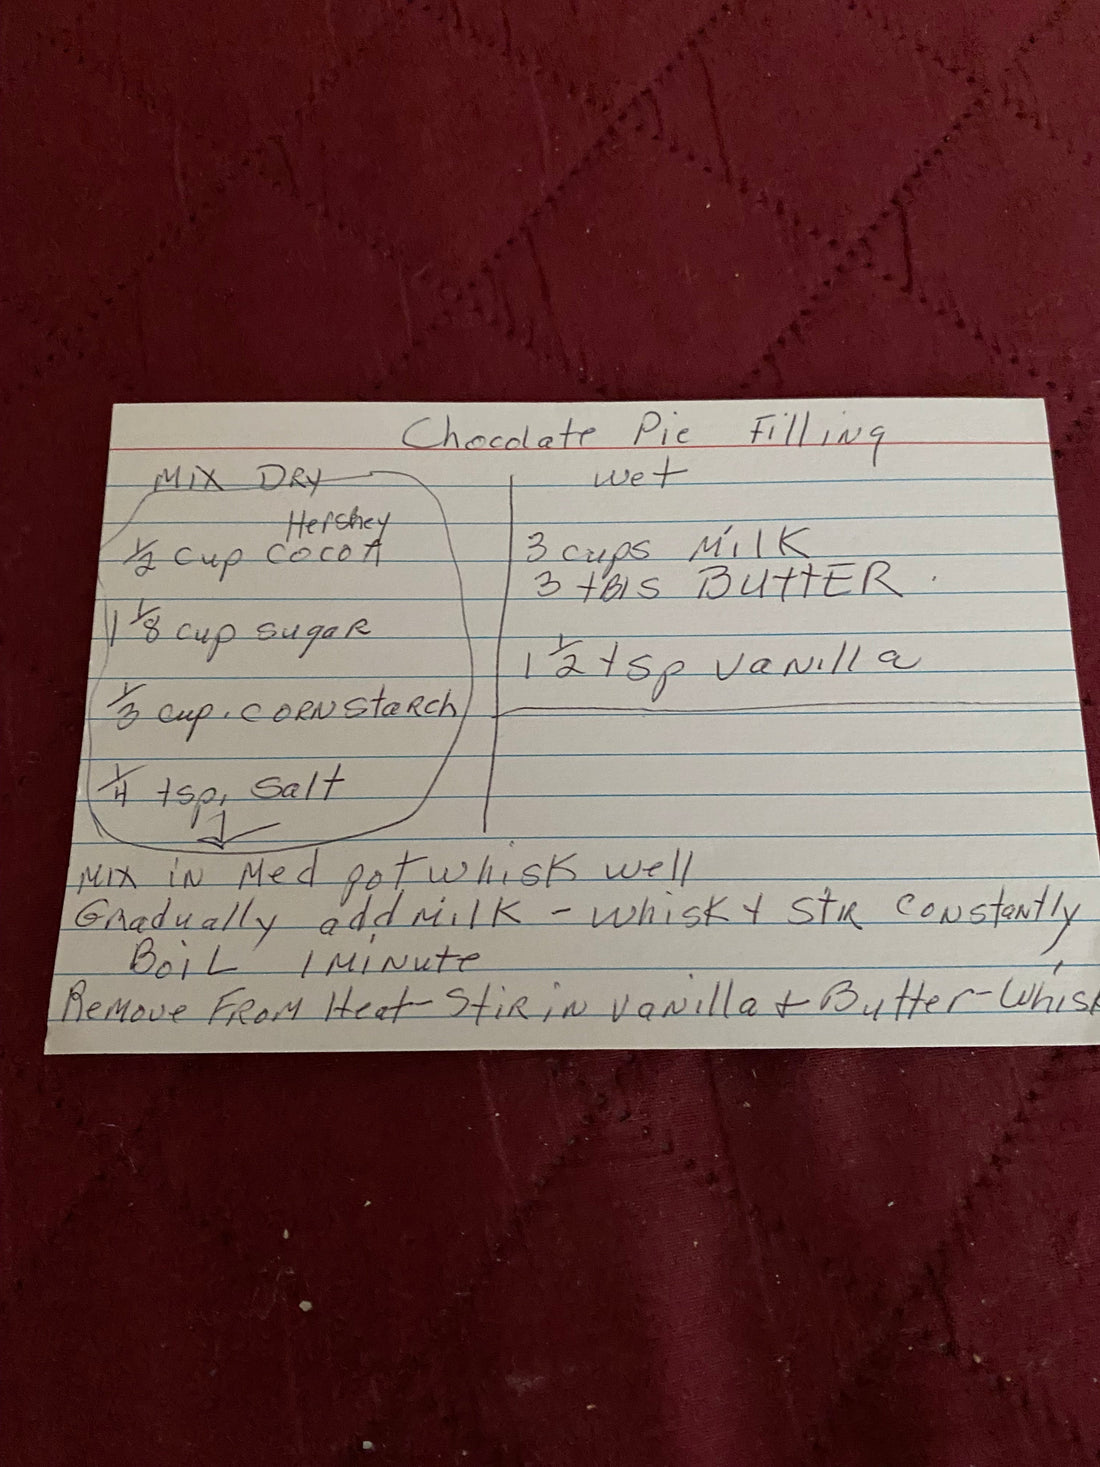 Chocolate Pie Filling
Mix DRY
Hershey
1/2 cup COCOA
1 1/8 cup sugaR
1/3 cup. CORNStaRch
1/4 tsp, Salt
wet
3 cups MilK
3 tBls BUttER.
1 1/2 tsp vaNilla
Mix iN Med pot whisK well
GRadually add MilK - whisK & StiR CoNstaNtly
BoiL 1 MiNUte
ReMove FRoM Heat - StiR iN VaNilla & Butter - Whisk